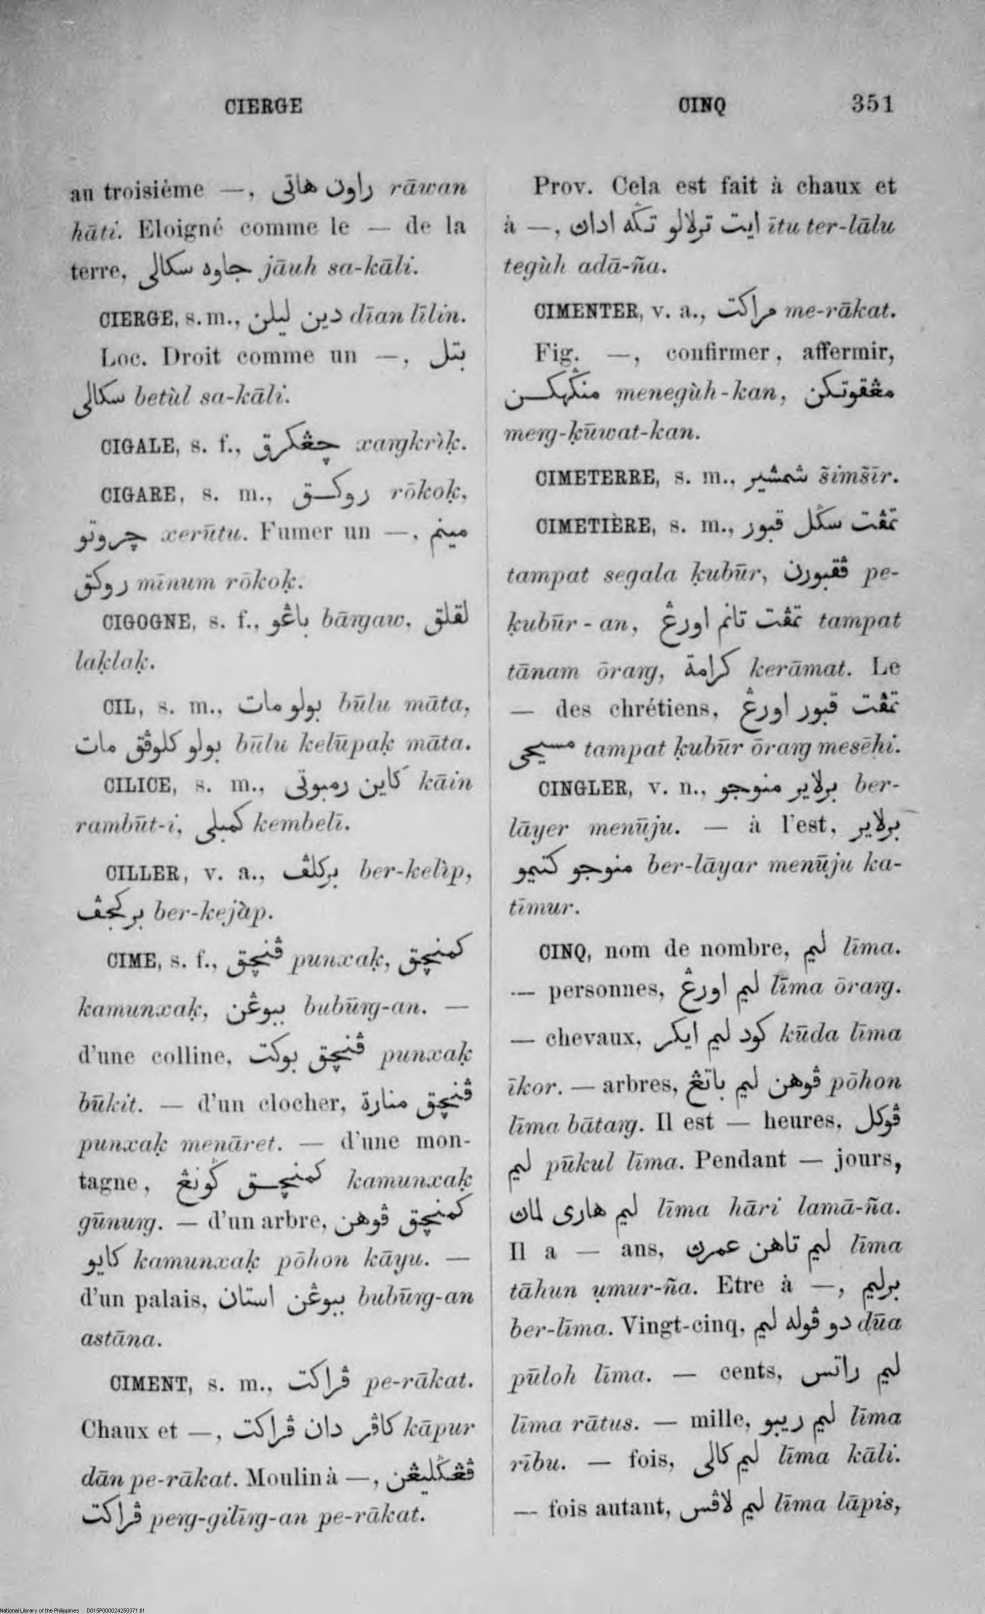 CIERGE CINQ 351
au troisième —, راون هاتي rāwan
hāti. Eloigné comme le — de la
terre, جاوه سكالي jāuh sa-kāli.
CIERGE, s. m., دين ليلن dīan līlin.
Loc. Droit comme un —, بتل
سكالي betùl sa-kāli.
CIGALE, s. f., چڠكرق xaꞑkrìḳ.
CIGARE, s. m., روكق rōkoḳ,
چروتو xerūtu. Fumer un —, مينم
روكق mīnum rōkoḳ.
CIGOGNE, s. f., باڠو bāꞑaw, لقلق
laḳlaḳ.
CIL, s. m., بولو مات būlu māta,
بولو كلوڤق مات būlu kelūpaḳ māta.
CILICE, s. m., كاين رمبوتي kāin
rambūt-i, كمبلي kembelī.
CILLER, v. a., بركلڤ ber-kelìp,
بركجڤ ber-kejàp.
CIME, s. f., ڤنچق punxaḳ, كمنچق
kamunxaḳ, ببوڠن bubūꞑ-an. —
d'une colline, ڤنچق بوكت punxaḳ
būkit. — d'un clocher, ڤنچق منارة
punxaḳ menāret. — d'une mon-
tagne, كمنچق ڬونڠ kamunxaḳ
gūnuꞑ. — d'un arbre, كمنچق ڤوهن
كايو kamunxaḳ pōhon kāyu. —
d'un palais, ببوڠن استان bubūꞑ-an
astāna.
CIMENT, s. m., ڤراكت pe-rākat.
Chaux et —, كاڤر دان ڤراكت kāpur
dān pe-rākat. Moulin à —, ڤڠڬليڠن
ڤراكت peꞑ-gilīꞑ-an pe-rākat.
Prov. Cela est fait à chaux et
à —, ايت ترلالو تڬه اداڽ ītu ter-lālu
tegùh adā-ña.
CIMENTER, v. a., مراكت me-rākat.
Fig. —, confirmer, affermir,
منڬهكن menegùh-kan, مڠقوتكن
meꞑ-ḳūwat-kan.
CIMETERRE, s. m., شمشير šimšīr.
CIMETIÈRE, s. m., تمڤت سڬل قبور
tampat segala ḳubūr, ڤقبورن pe-
ḳubūr-an, تمڤت تانم اورڠ tampat
tānam ōraꞑ, كرامة kerāmat. Le
— des chrétiens, تمڤت قبور اورڠ
مسيحي tampat ḳubūr ōraꞑ mesēhi.
CINGLER, v. n., برلاير منوجو ber-
lāyer menūju. — à l'est, برلاير
منوجو كتيمو ber-lāyar menūju ka-
tīmur.
CINQ, nom de nombre, ليم līma.
— personnes, ليم اورڠ līma ōraꞑ.
— chevaux, كود ليم ايكر kūda līma
īkor. — arbres, ڤوهن ليم باتڠ pōhon
līma bātaꞑ. Il est — heures, ڤوكل
ليم pūkul līma. Pendant — jours,
ليم هاري لماڽ līma hāri lamā-ña.
Il a — ans, ليم تاهن عمرڽ līma
tāhun ụmur-ña. Etre à —, برليم
ber-līma. Vingt-cinq, دو ڤوله ليم dūa
pūloh līma. — cents, ليم راتس
līma rātus. — mille, ليم ريبو līma
rību. — fois, ليم كالي līma kāli.
— fois autant, ليم لاڤس līma lāpis,
National Library of the Philippines